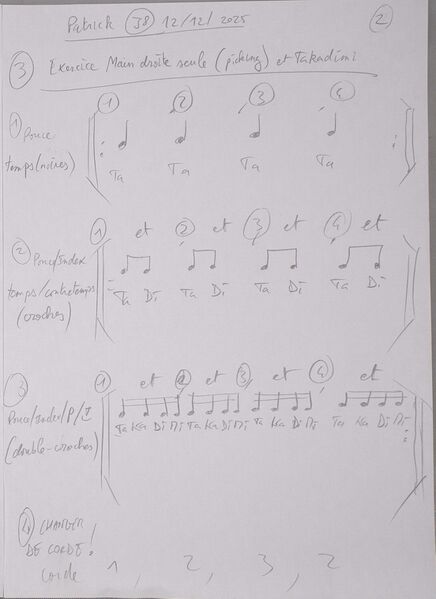 Patrick J8 12/12/2025 2
3 Exercice Main droite seule (picking) et Takadimi
1 2 3 4
1 Pouce
temps (noires)
Ta Ta Ta Ta
1 et 2 et 3 et 4 et
2 Pouce/Index
temps/contretemps
(croches)
Ta Di Ta Di Ta Di Ta Di
1 et 2 et 3 et 4 et
3
Pouce/Index/P/I
(double-croches)
Ta Ka Di Mi Ta Ka Di Mi Ta Ka Di Mi Ta Ka Di Mi
4 CHANGER
DE CORDE !
Corde 1, 2, 3, 2